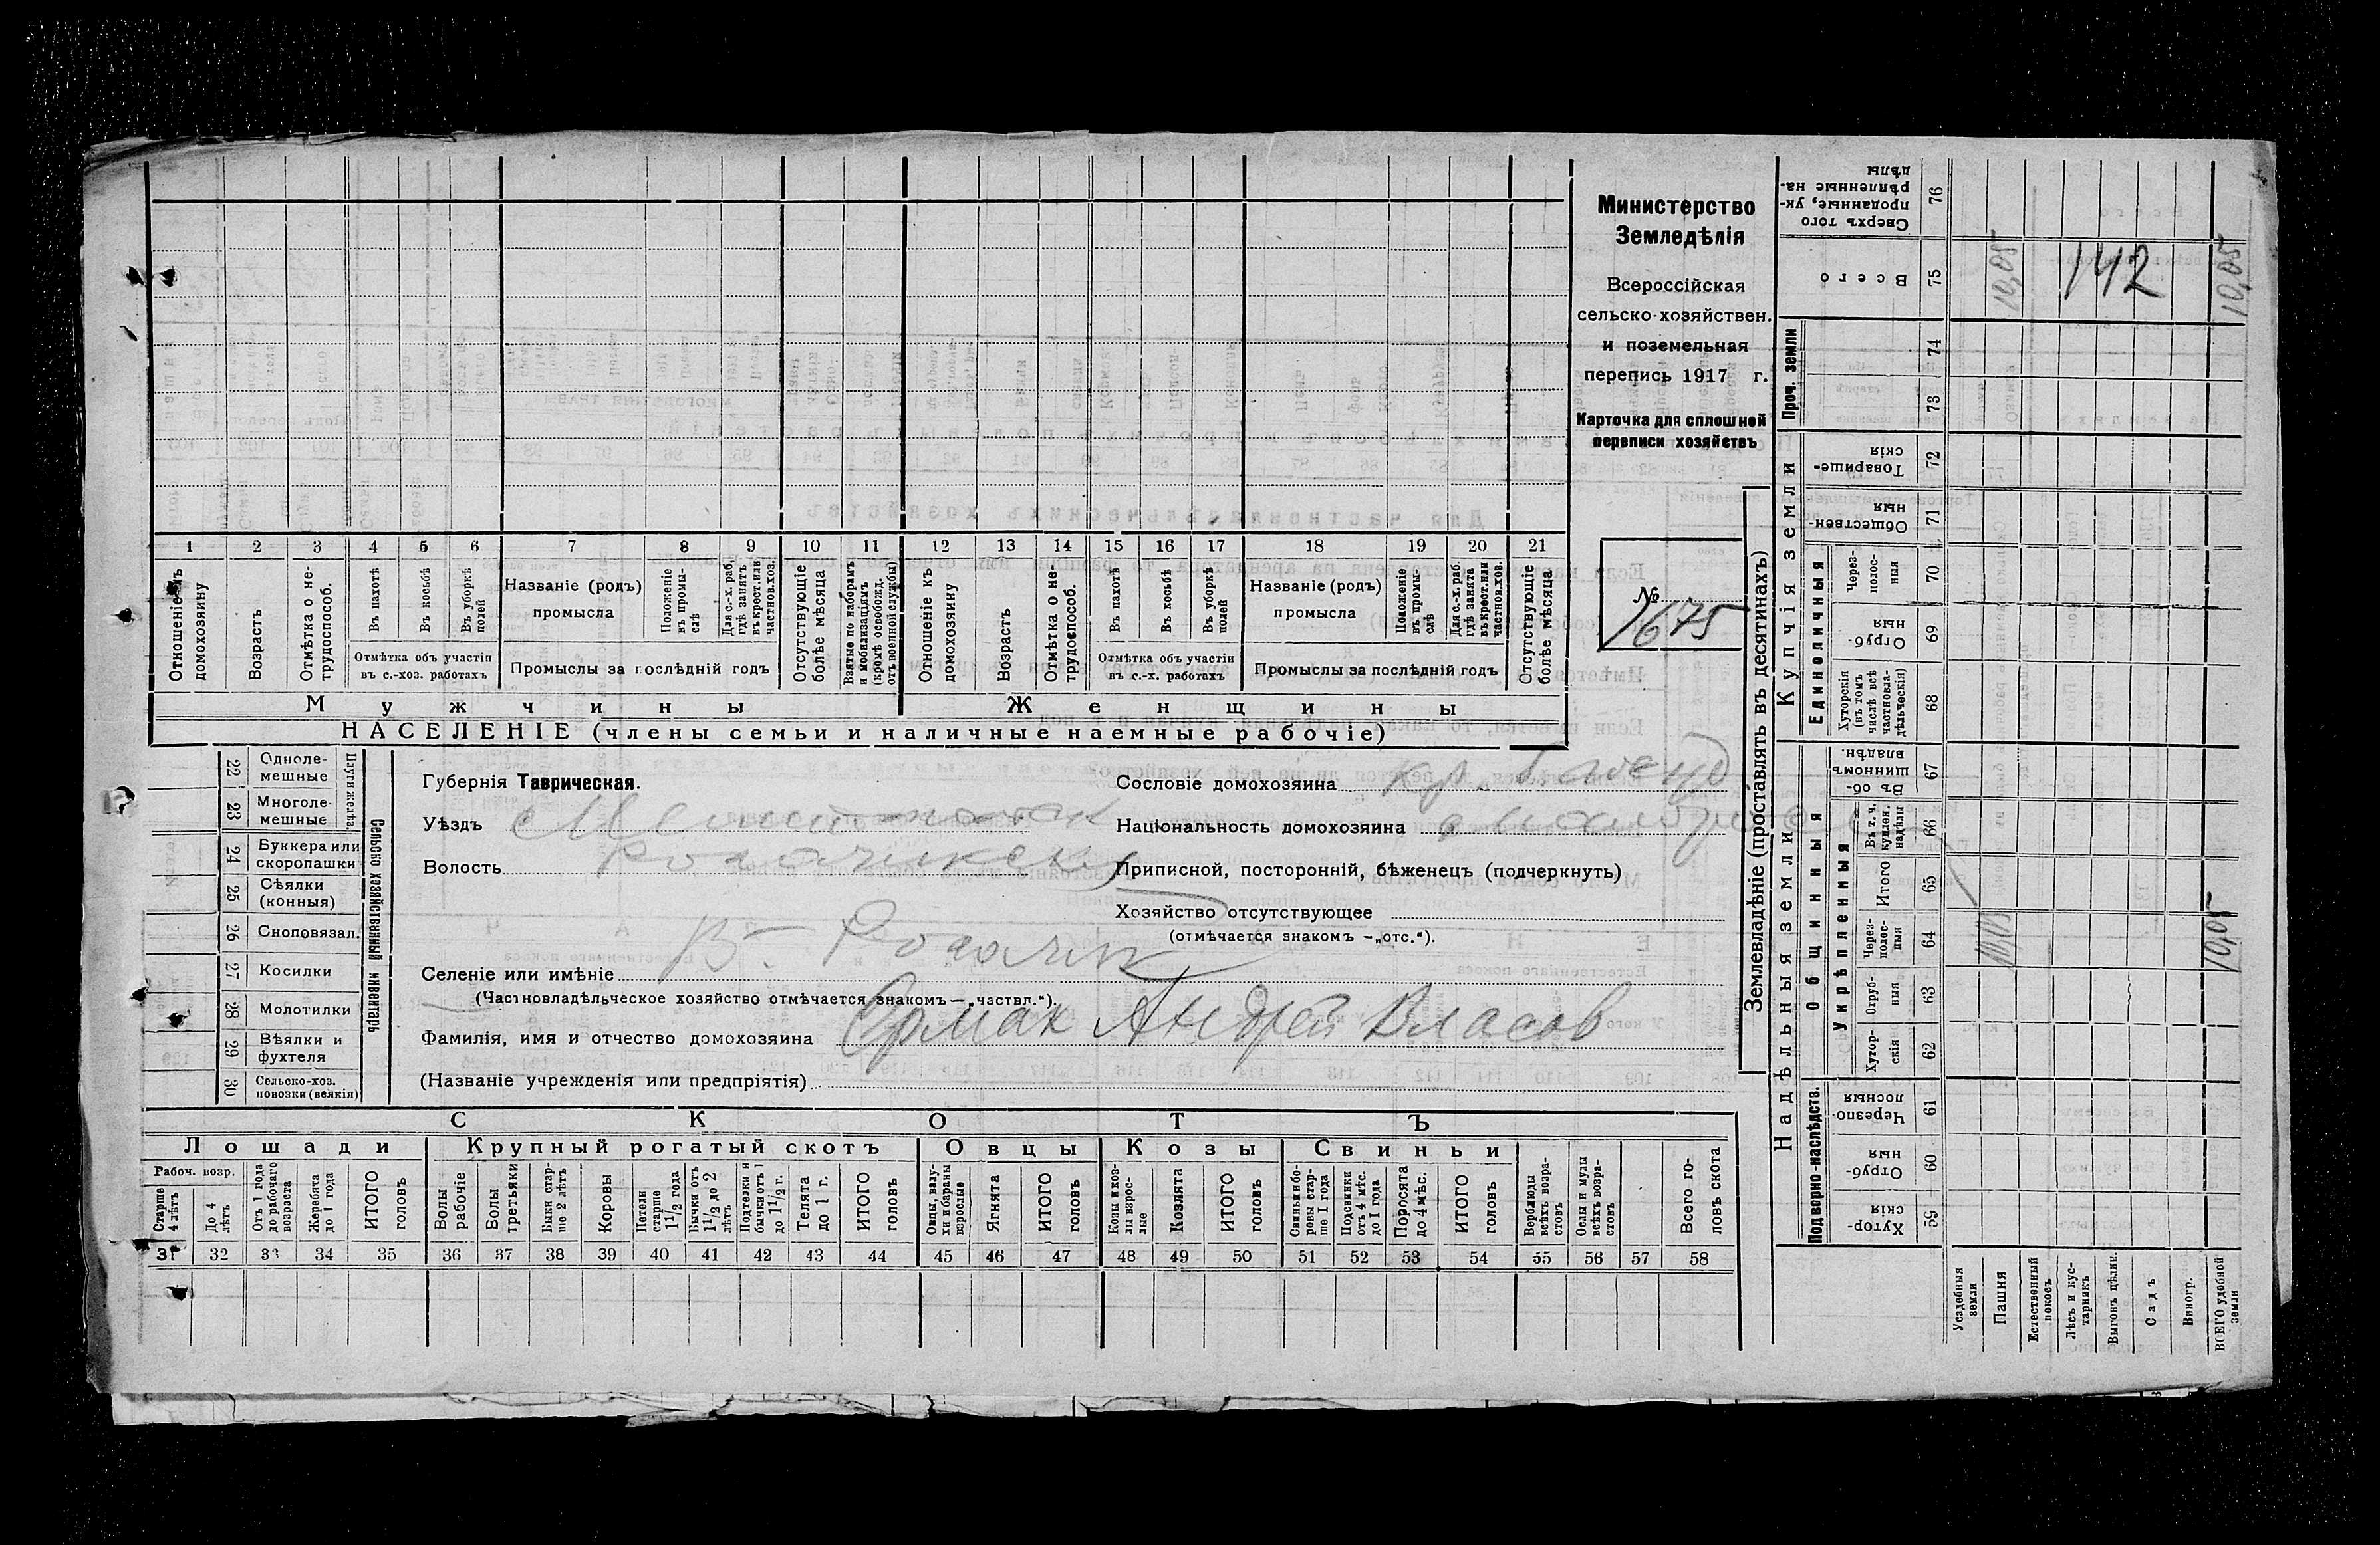 Министерство
Земледѣлія
Всероссійская
сельско-хозяйствен.
и поземельная
перепись 1917 г.
Карточка для сплошной
переписи хозяйствъ
№
1675
1 2 3 4 5 6 7 8 9 10 11 12 13 14 15 16 17 18 19 20 21
Отношеніе къ домохозяину
Возрастъ
Отмѣтка о не-трудоспособ.
Въ пахотѣ
Въ косьбѣ
Въ уборкѣ полей
Отмѣтка объ участіи
въ с.-хоз. работахъ
Названіе (родъ)
промысла
Положеніе въ промы-слѣ
Для с.-х. раб. гдѣ занятъ въ крест. или частнов. хоз.
Промыслы за послѣдній годъ
Отсутствующіе болѣе мѣсяца
Взятые по наборамъ и мобилизаціямъ (кромѣ освобожд. отъ военной службы)
Отношеніе къ домохозяину
Возрастъ
Отмѣтка о не-трудоспособ.
Въ пахотѣ
Въ косьбѣ
Въ уборкѣ полей
Отмѣтка объ участіи
въ с.-х. работахъ
Названіе (родъ)
промысла
Положеніе въ промы-слѣ
Для с.-х. раб. гдѣ занята въ крест. или частнов. хоз.
Промыслы за послѣдній годъ
Отсутствующіе болѣе мѣсяца
Мужчины Женщины
НАСЕЛЕНІЕ (члены семьи и наличные наемные рабочіе)
22 Одноле-мешные
23 Многоле-мешные
Плуги желѣз.
24 Буккера или скоропашки
25 Сѣялки (конныя)
26 Сноповязал.
27 Косилки
28 Молотилки
29 Вѣялки и фухтеля
30 Сельско-хоз. повозки (всякія)
Сельско хозяйственный инвентарь
Губернія Таврическая.
Уѣздъ
Волость
Селеніе или имѣніе В. Рогачик
(Частновладѣльческое хозяйство отмѣчается знакомъ—„частвл.“).
Фамилія, имя и отчество домохозяина Ермак Андрей Власов
(Названіе учрежденія или предпріятія)
Сословіе домохозяина кр.
Національность домохозяина
Приписной, посторонній, бѣженецъ (подчеркнуть)
Хозяйство отсутствующее
(отмѣчается знакомъ —„отс.“).
СКОТЪ
Лошади Крупный рогатый скотъ Овцы Козы Свиньи
Рабоч. возр.
Старше 4 лѣтъ
До 4 лѣтъ
Отъ 1 года до рабочаго возраста
Жеребята до 1 года
ИТОГО головъ
Волы рабочіе
Волы третьяки
Быки стар-ше 2 лѣтъ
Коровы
Нетели старше 1 1/2 года
Бычки отъ 1 1/2 до 2 лѣтъ
Подтелки и бычки отъ 1 до 1 1/2 г.
Телята до 1 г.
ИТОГО головъ
Овцы, валу-хи и бараны взрослые
Ягнята
ИТОГО головъ
Козы и коз-лы взрос-лые
Козлята
ИТОГО головъ
Свиньи и бо-ровы стар-ше 1 года
Подсвинки отъ 4 мѣс. до 1 года
Поросята до 4 мѣс.
ИТОГО головъ
Верблюды всѣхъ возра-стовъ
Ослы и мулы всѣхъ возра-стовъ
Всего го-ловъ скота
31 32 33 34 35 36 37 38 39 40 41 42 43 44 45 46 47 48 49 50 51 52 53 54 55 56 57 58
Землевладѣніе (проставлять въ десятинахъ)
Надѣльныя земли
Купчія земли
Проч. земли
Подворно-наслѣдств.
Общинныя
Укрѣпленныя
Единоличныя
Сверхъ того проданные, ук-рѣпленные на-дѣлы 76
Всего 75 10,05 142 10,05
74
73
Товарище-скія 72
Обществен-ныя 71
Через-полос-ныя 70
Отруб-ныя 69
Хуторскія (въ томъ числѣ всѣ частновла-дѣльческія) 68
Въ об-щинномъ владѣн. 67
Въ т. ч. куплен. надѣлы 66
ИТОГО 65
Через-полос-ныя 64 10,05 10,05
Отруб-ныя 63
Хутор-скія 62
Черезпо-лосныя 61
Отруб-ныя 60
Хутор-скія 59
Усадебныя земли
Пашня
Естественный покосъ
Лѣсъ и кус-тарникъ
Выгонъ цѣлин.
Садъ
Виногр.
ВСЕГО удобной земли